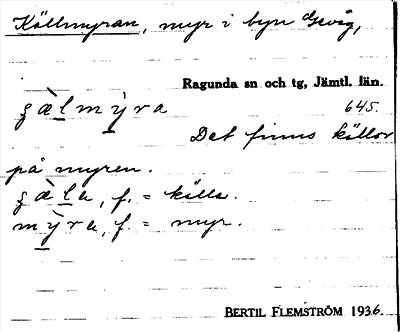 Källmyran, myr i byn Gevåg,
Ragunda sn och tg, Jämtl. län.
645.
Det finns källor
på myren.
f. = källa.
f. = myr.
BERTIL FLEMSTRÖM 1936.